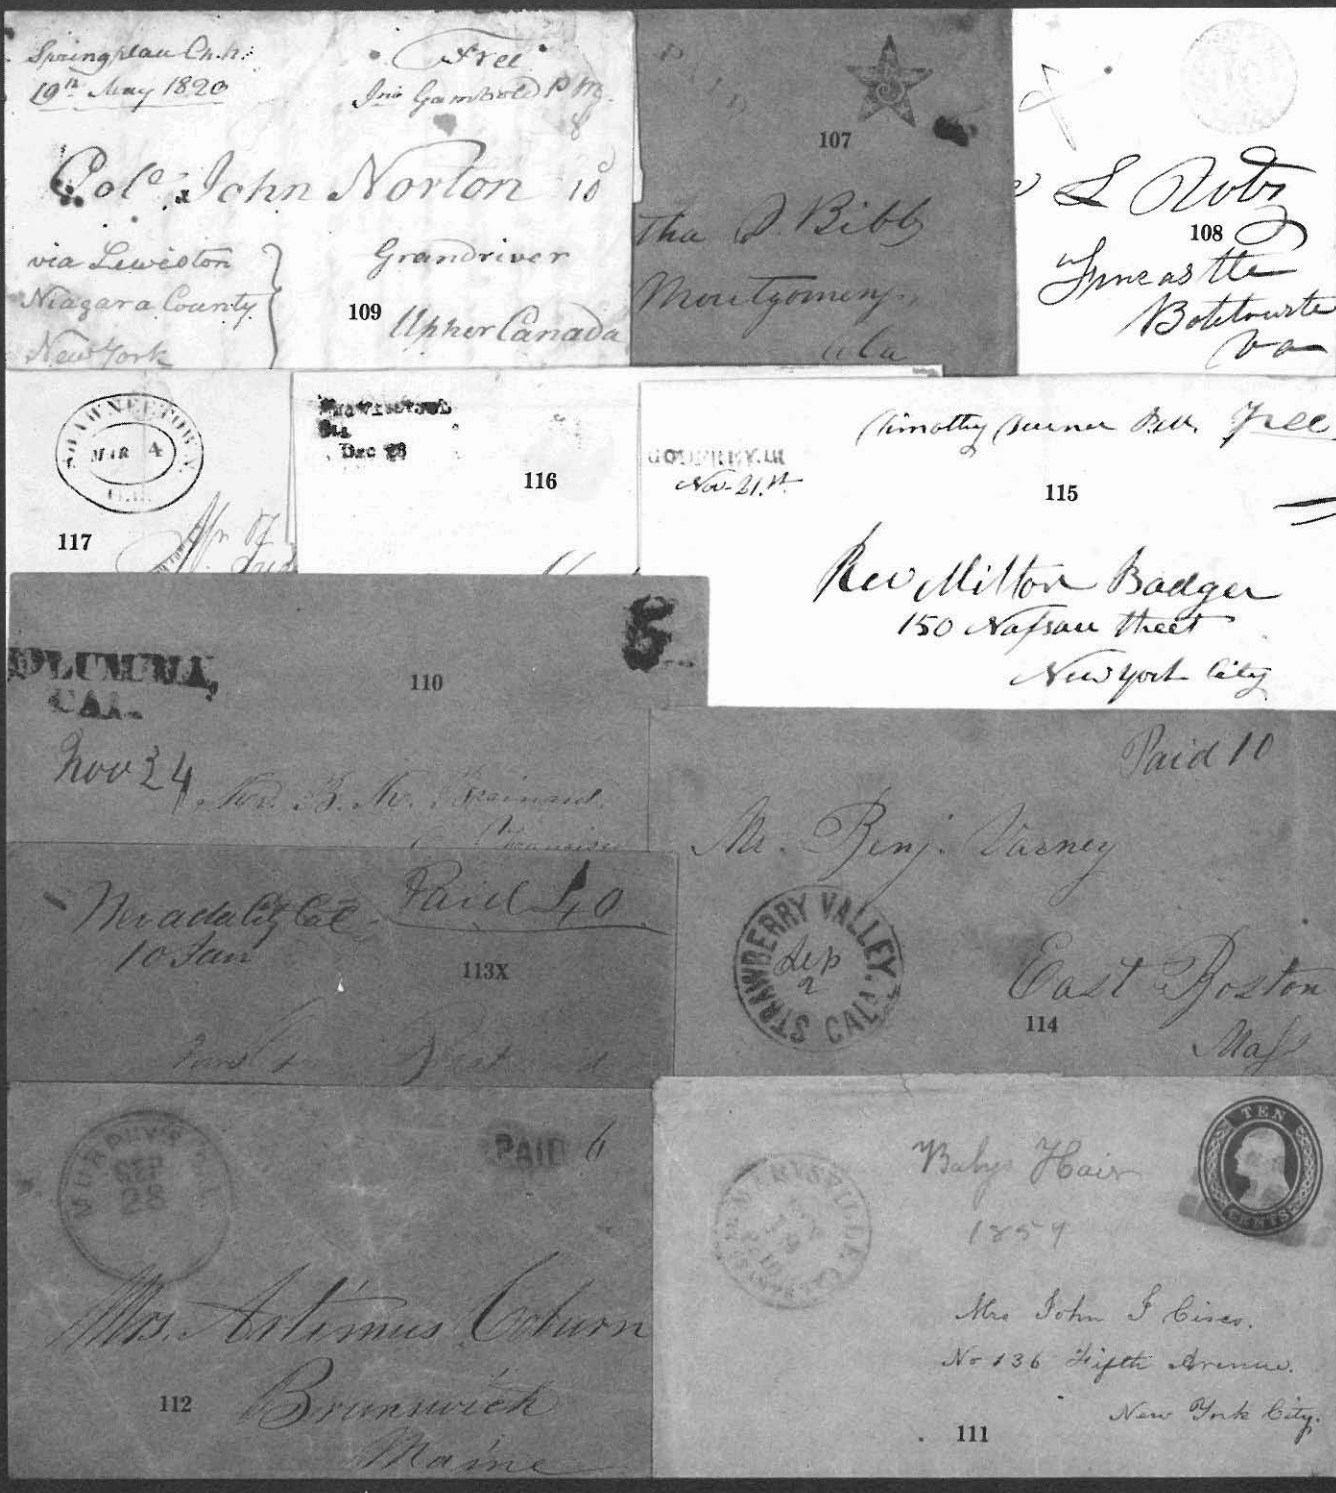 Springplace Ch. n.
19th May 1820
Free
Jno Gambold P M.
8
Colo. John Norton 10
via Lewiston
Niagara County
New York
Grandriver
109 Upper Canada
PAID
5
107
tha D. Bibb
Montgomery
Ala
L
108
Fincastle
Botetourte
Va
SHAWNEETOWN
MAR 4
ILL.
117
Dec 28
116
GODFREY. Ill
Nov. 21.st
Timothy Turner P.M. Free
115
Rev Milton Badger
150 Nassau Street
New York City
OLUMBIA,
CAL.
5
110
Nov 24
Paid 10
Mr. Benj. Varney
STRAWBERRY VALLEY,
CAL.
Sep
2
East Boston
114
Mass
Nevada City Cal
10 Jan
Paid 40
113X
MURPHY'S
SEP
28
PAID 6
Mrs. Artimus Coburn
112 Brunswick
Maine
MARYSVILLE
TEN
CENTS
Babys Hair
1857
Mrs John J Cisco.
No 136 Fifth Avenue.
New York City.
111